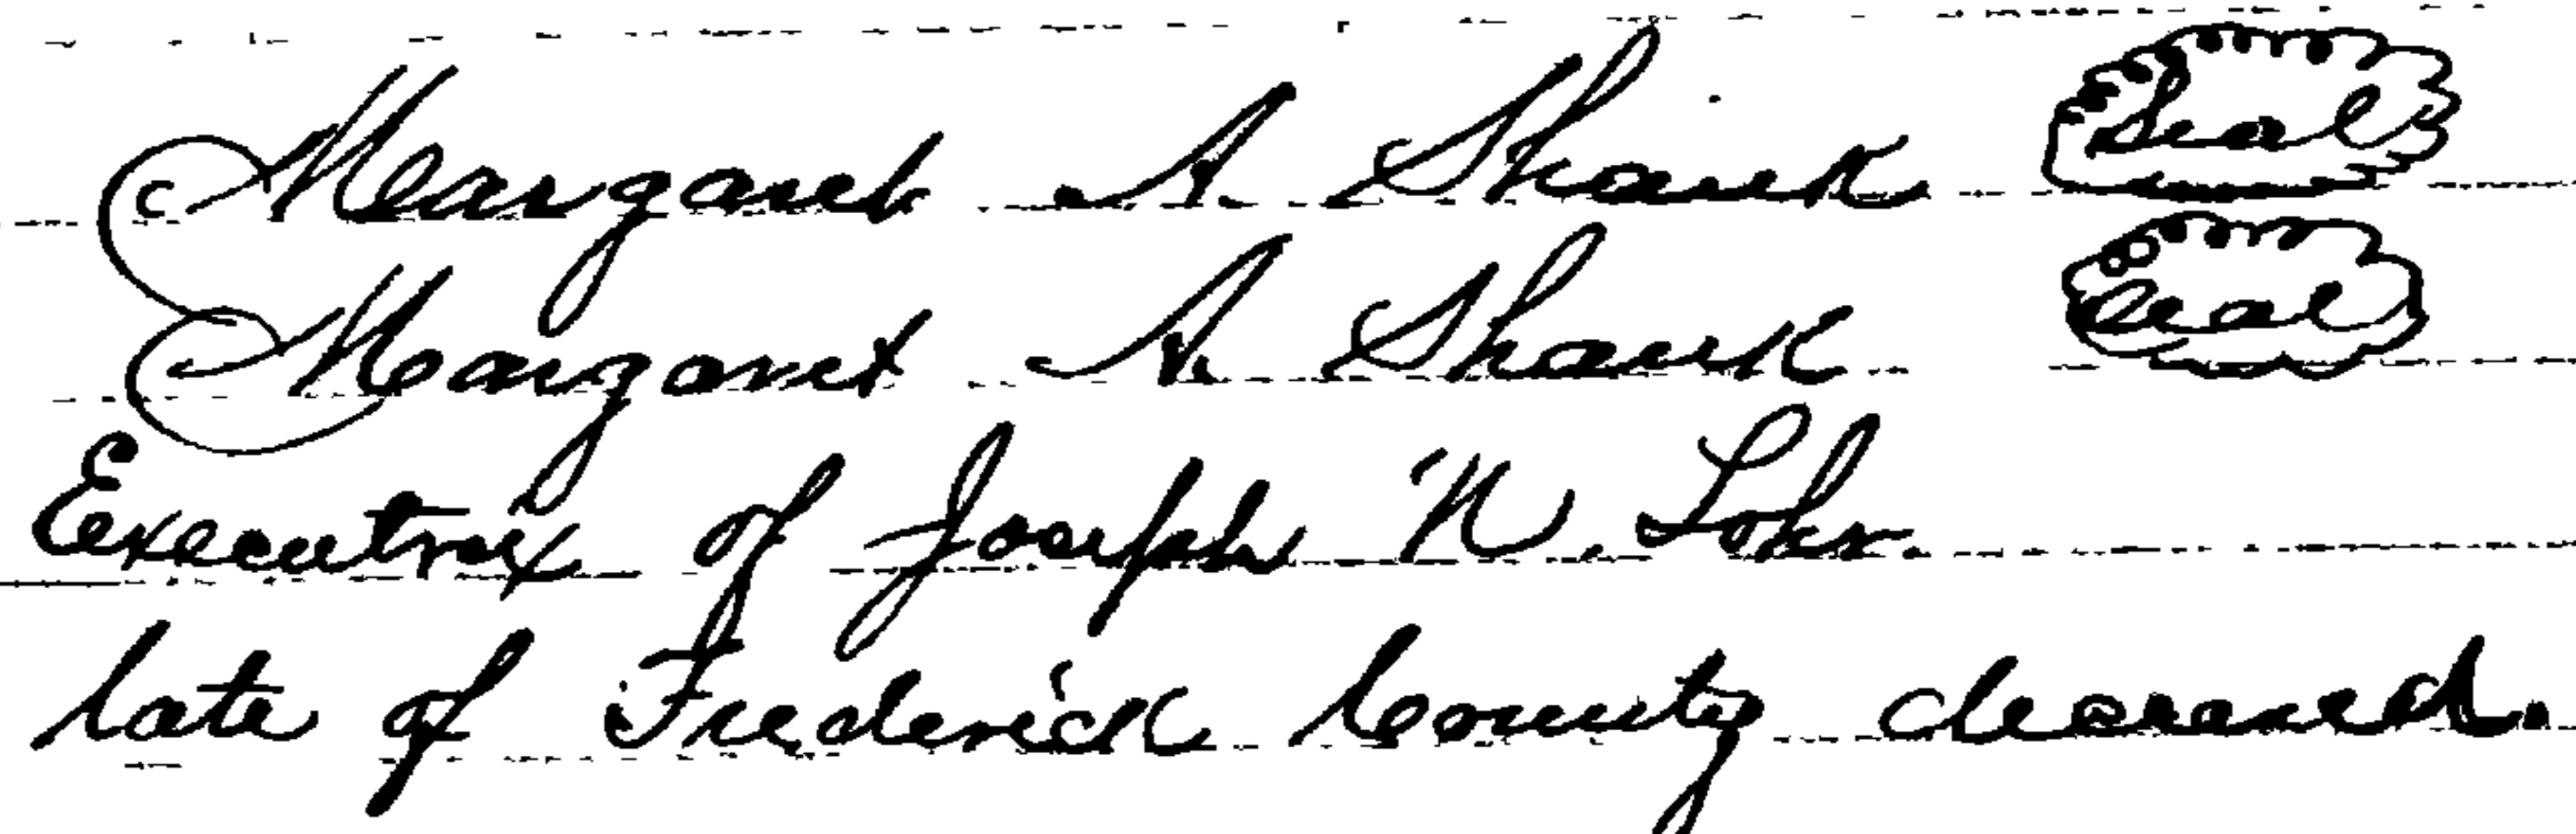 Margaret A. Shank Seal
Margaret A. Shank Seal
Executrix of Joseph N. Lohr
late of Frederick County deceased.